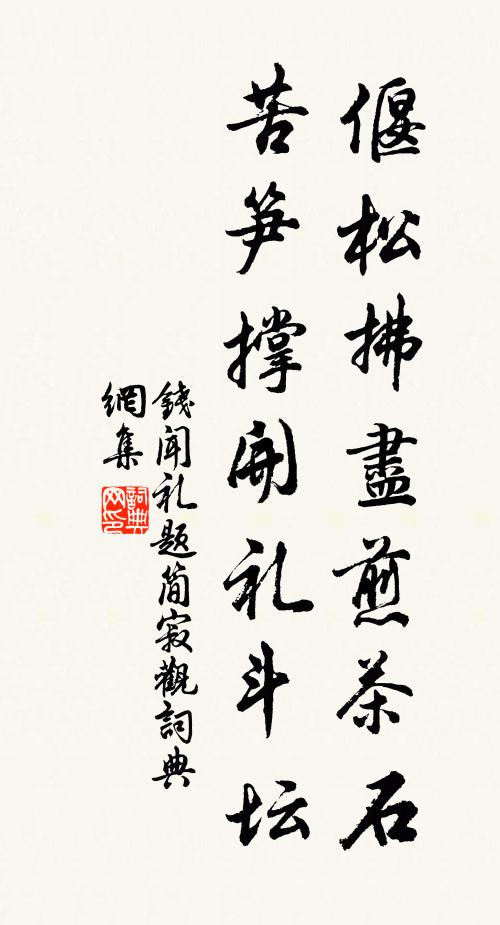 偃松拂盡煎茶石
苦笋撑開礼斗坛
錢聞礼题简寂觀詞典
網集
詞典
网印